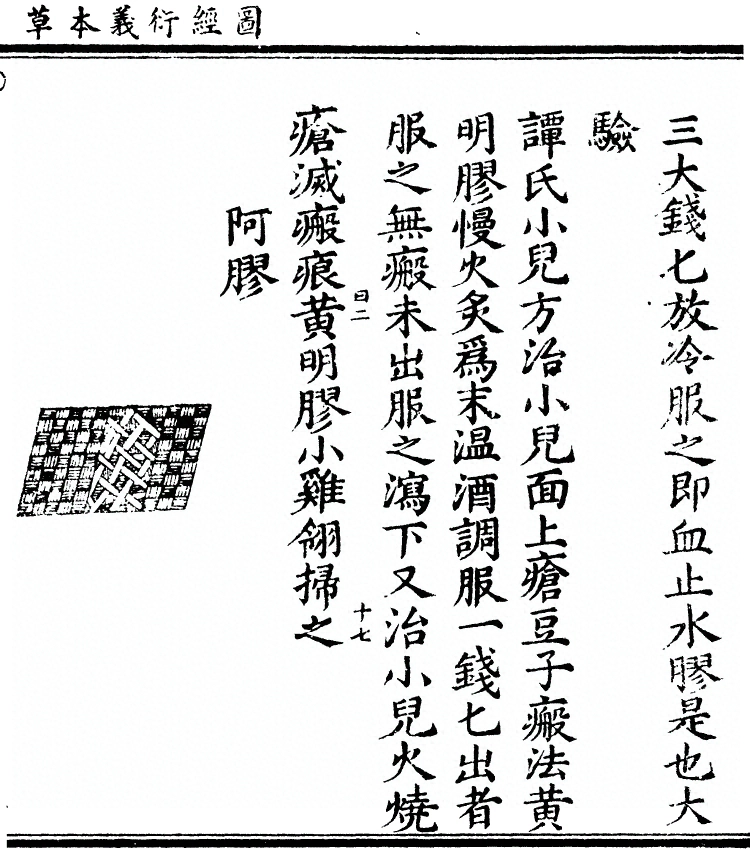 圖經衍義本草
三大錢匕放冷服之即血止水膠是也大
驗
譚氏小兒方治小兒面上瘡豆子瘢法黄
明膠慢火炙爲末温酒調服一錢匕出者
服之無瘢未出服之瀉下又治小兒火燒
瘡滅瘢痕黄明膠小雞翎掃之
曰二
十七
阿膠